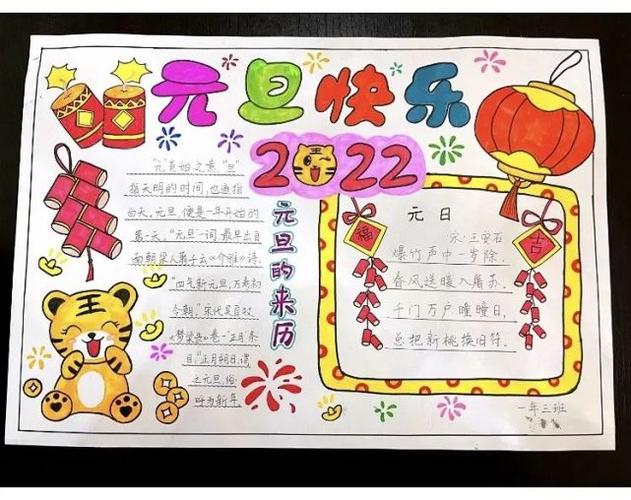 元旦快乐
2022
元旦的来历
"元"有始之意,"旦"
指天明的时间,也通指
白天。元旦,便是一年开始的
第一天。"元旦"一词,最早出自
南朝梁人萧子云《介雅》诗,
"四气新元旦,万寿初
今朝。"宋代吴自牧
《梦粱录》卷一"正月"条
目:"正月朔日,谓
之元旦,俗
呼为新年。
福
吉
王
元日
宋·王安石
爆竹声中一岁除,
春风送暖入屠苏,
千门万户曈曈日,
总把新桃换旧符。
一年三班